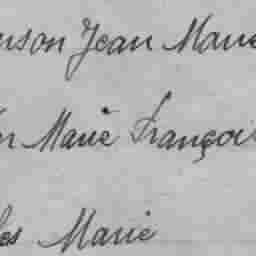 nson Jean Marie
er Marie Françoi
les Marie